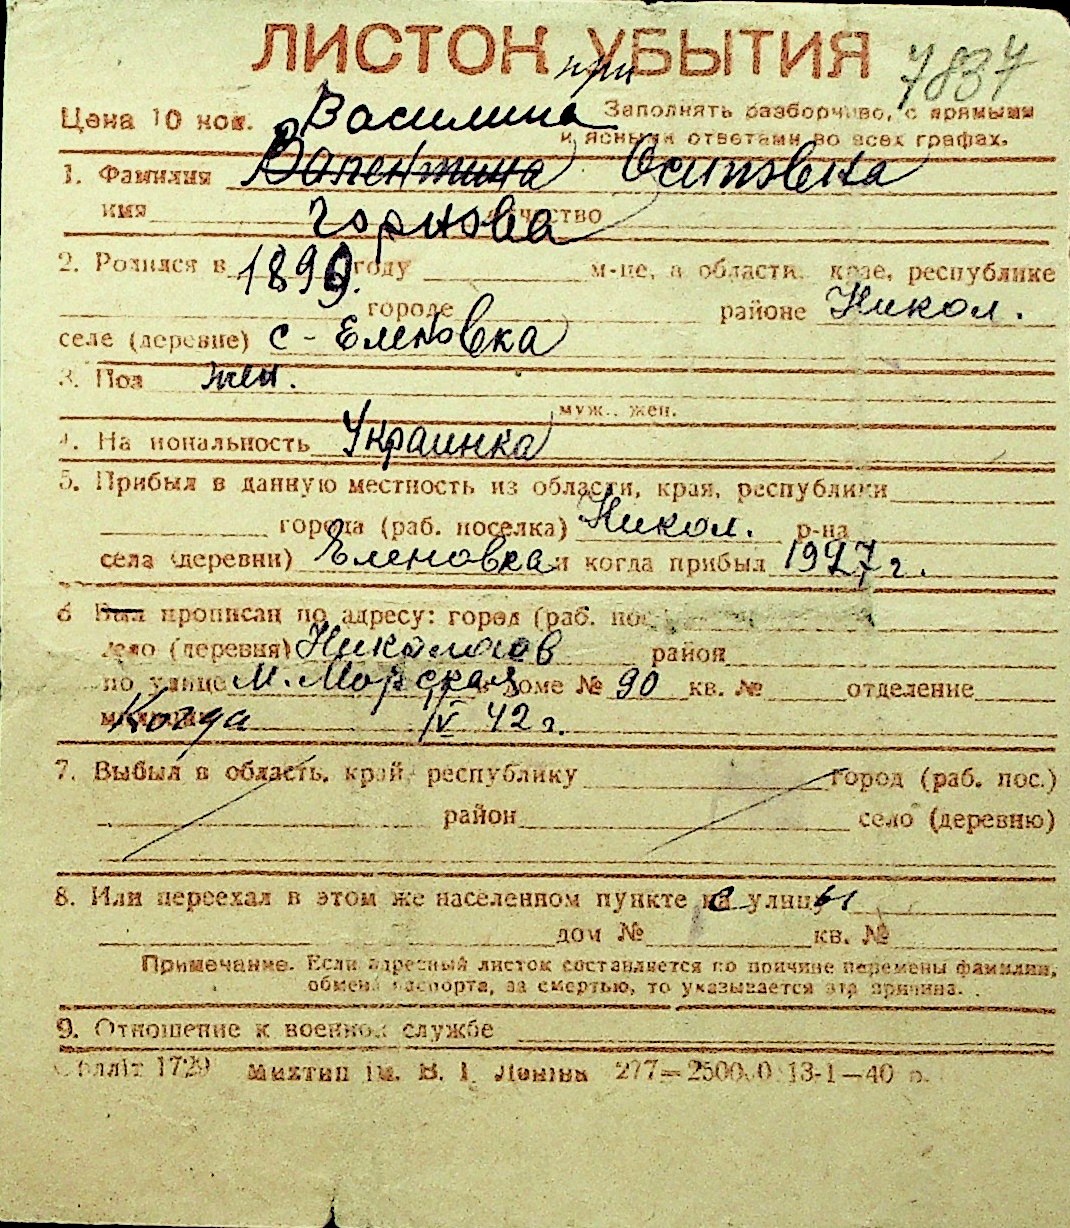 ЛИСТОК УБЫТИЯ
при
7837
Цена 10 коп.
Василина
Заполнять разборчиво, с прямыми
и ясными ответами во всех графах.
1. Фамилия Валентина Осиповна
имя Горнова отчество
2. Родился в 1899. году м-це, в области, крае, республике
городе районе Никол.
селе (деревне) с-Еленовка
3. Пол жен.
муж., жен.
4. Национальность Украинка
5. Прибыл в данную местность из области, края, республики
города (раб. поселка) Никол. р-на
села (деревни) Еленовка и когда прибыл 1927 г.
6 Был прописан по адресу: город (раб. пос
село (деревня) Николаев район
по улице М. Морская в доме № 90 кв. № отделение
Когда IV 42 г.
7. Выбыл в область, край, республику город (раб. пос.)
район село (деревню)
8. Или переехал в этом же населенном пункте с улицы
дом № кв. №
Примечание. Если адресный листок составляется по причине перемены фамилии,
обмена паспорта, за смертью, то указывается эта причина.
9. Отношение к военной службе
Облліт 1729 Миктип ім. В. І. Леніна 277—25000 13-1—40 р.